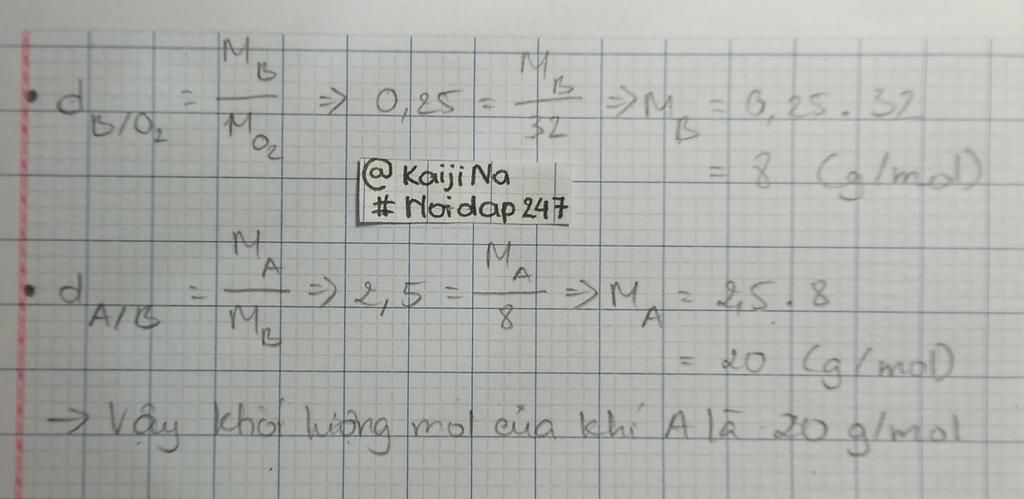 • d B/O₂ = M_B / M_O₂ ⇒ 0,25 = M_B / 32 ⇒ M_B = 0,25 . 32
= 8 (g/mol)
@ KaijiNa
# Hoidap247
• d A/B = M_A / M_B ⇒ 2,5 = M_A / 8 ⇒ M_A = 2,5 . 8
= 20 (g/mol)
→ Vậy khối lượng mol của khí A là 20 g/mol